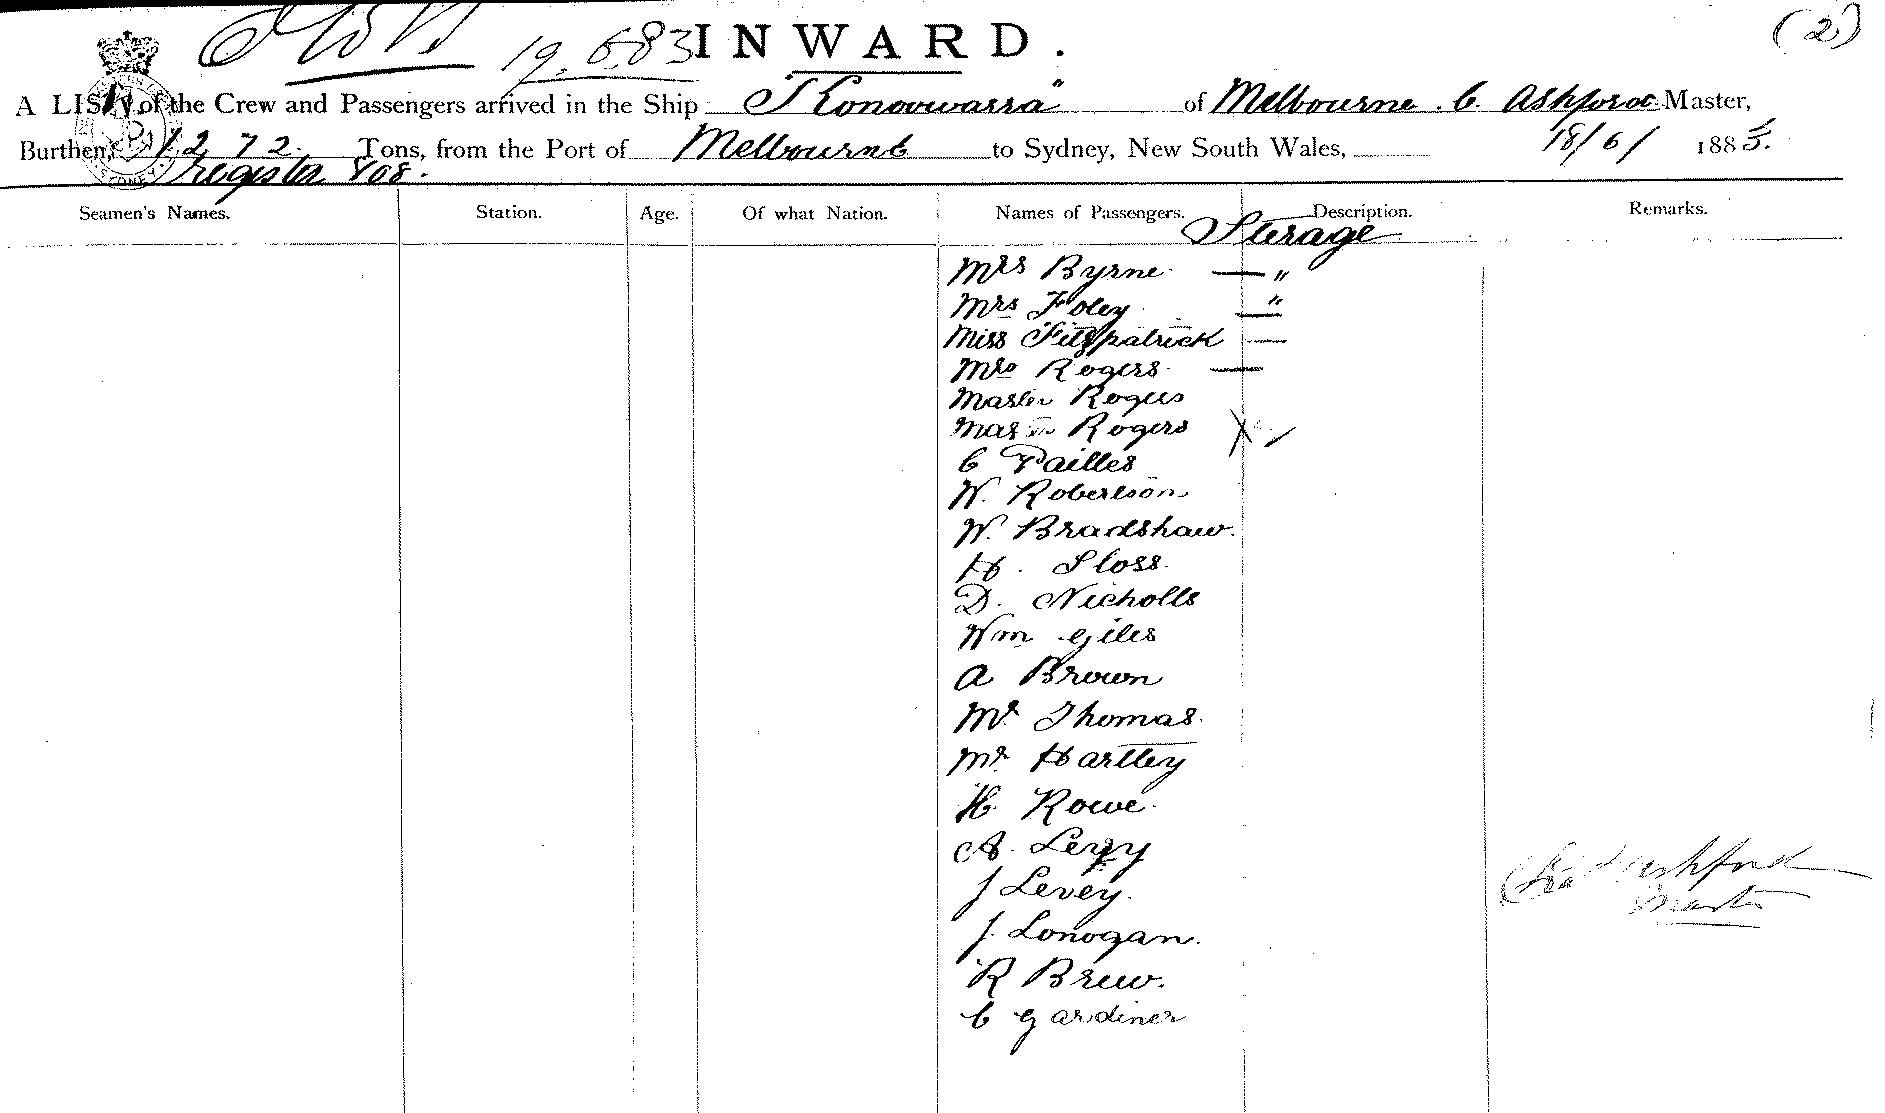 (2)
19.6.83
INWARD.
A LIST of the Crew and Passengers arrived in the Ship "Konoowarra" of Melbourne. C. Ashford Master,
Burthen, 1272 Tons, from the Port of Melbourne to Sydney, New South Wales, 18/6/ 1883.
register 808.
Seamen's Names. Station. Age. Of what Nation. Names of Passengers. Description. Remarks.
Sterage
Mrs Byrne — "
Mrs Foley — "
Miss Fitzpatrick —
Mrs Rogers —
Master Rogers
Master Rogers
C Pailles
W. Robertson
W. Bradshaw.
H. Sloss.
D. Nicholls
Wm Giles
A Brown
Mr Thomas.
Mr Hartley
H. Rowe.
A. Levy
J Levey.
J. Lonogan.
R Brew.
C Gardiner
Ashford
Master